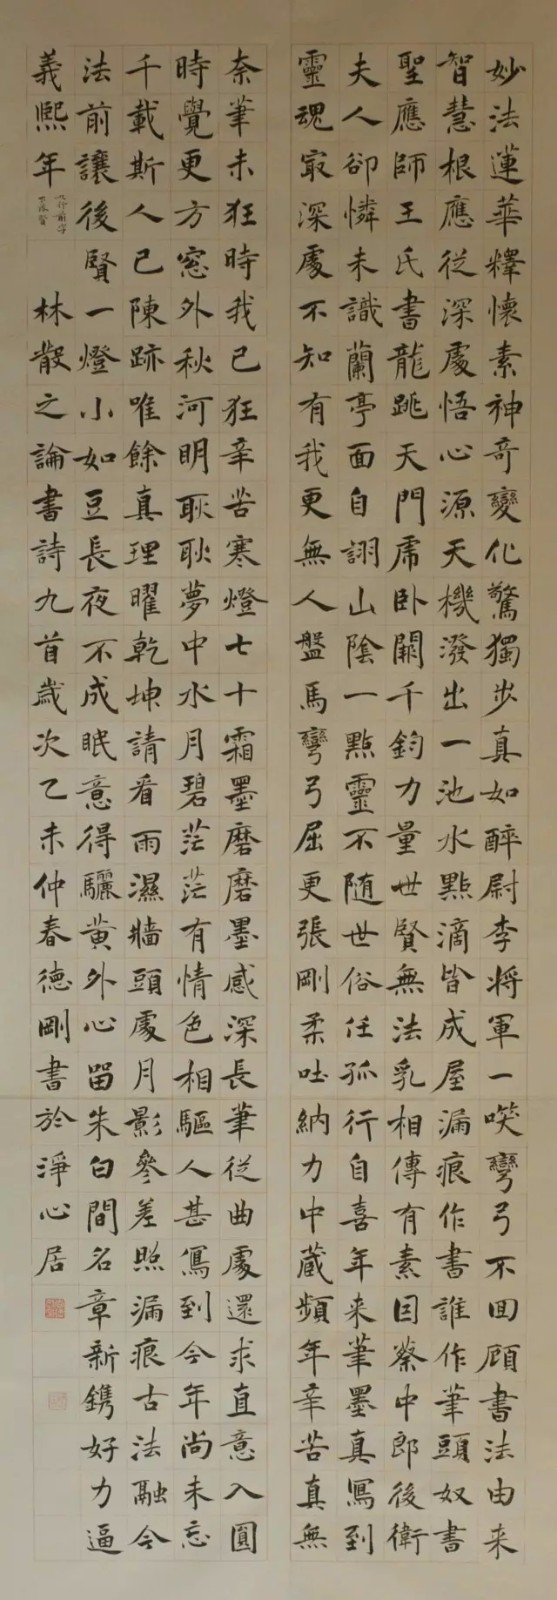 妙法蓮華釋懷素神奇變化驚獨步真如醉尉李將軍一喫彎弓不回顧書法由来
智慧根應從深處悟心源天機潑出一池水點滴皆成屋漏痕作書誰作筆頭奴書
聖應師王氏書龍跳天門虎卧闕千鈞力量世賢無法乳相傳有素因蔡中郎後衛
夫人卻憐未識蘭亭面自詡山陰一點靈不随世俗任孤行自喜年来筆墨真寫到
靈魂㝡深處不知有我更無人盤馬彎弓屈更張剛柔吐納力中藏頻年辛苦真無
奈筆未狂時我已狂辛苦寒燈七十霜墨磨磨墨感深長筆從曲處還求直意入圓
時覺更方窓外秋河明耿耿夢中水月碧茫茫有情色相驅人甚寫到今年尚未忘
千載斯人已陳跡唯餘真理曜乾坤請看雨濕牆頭處月影參差照漏痕古法融今
法前讓後賢一燈小如豆長夜不成眠意得驪黄外心留朱白間名章新鐫好力逼
義熙年 林散之論書詩九首歲次乙未仲春德剛書於淨心居